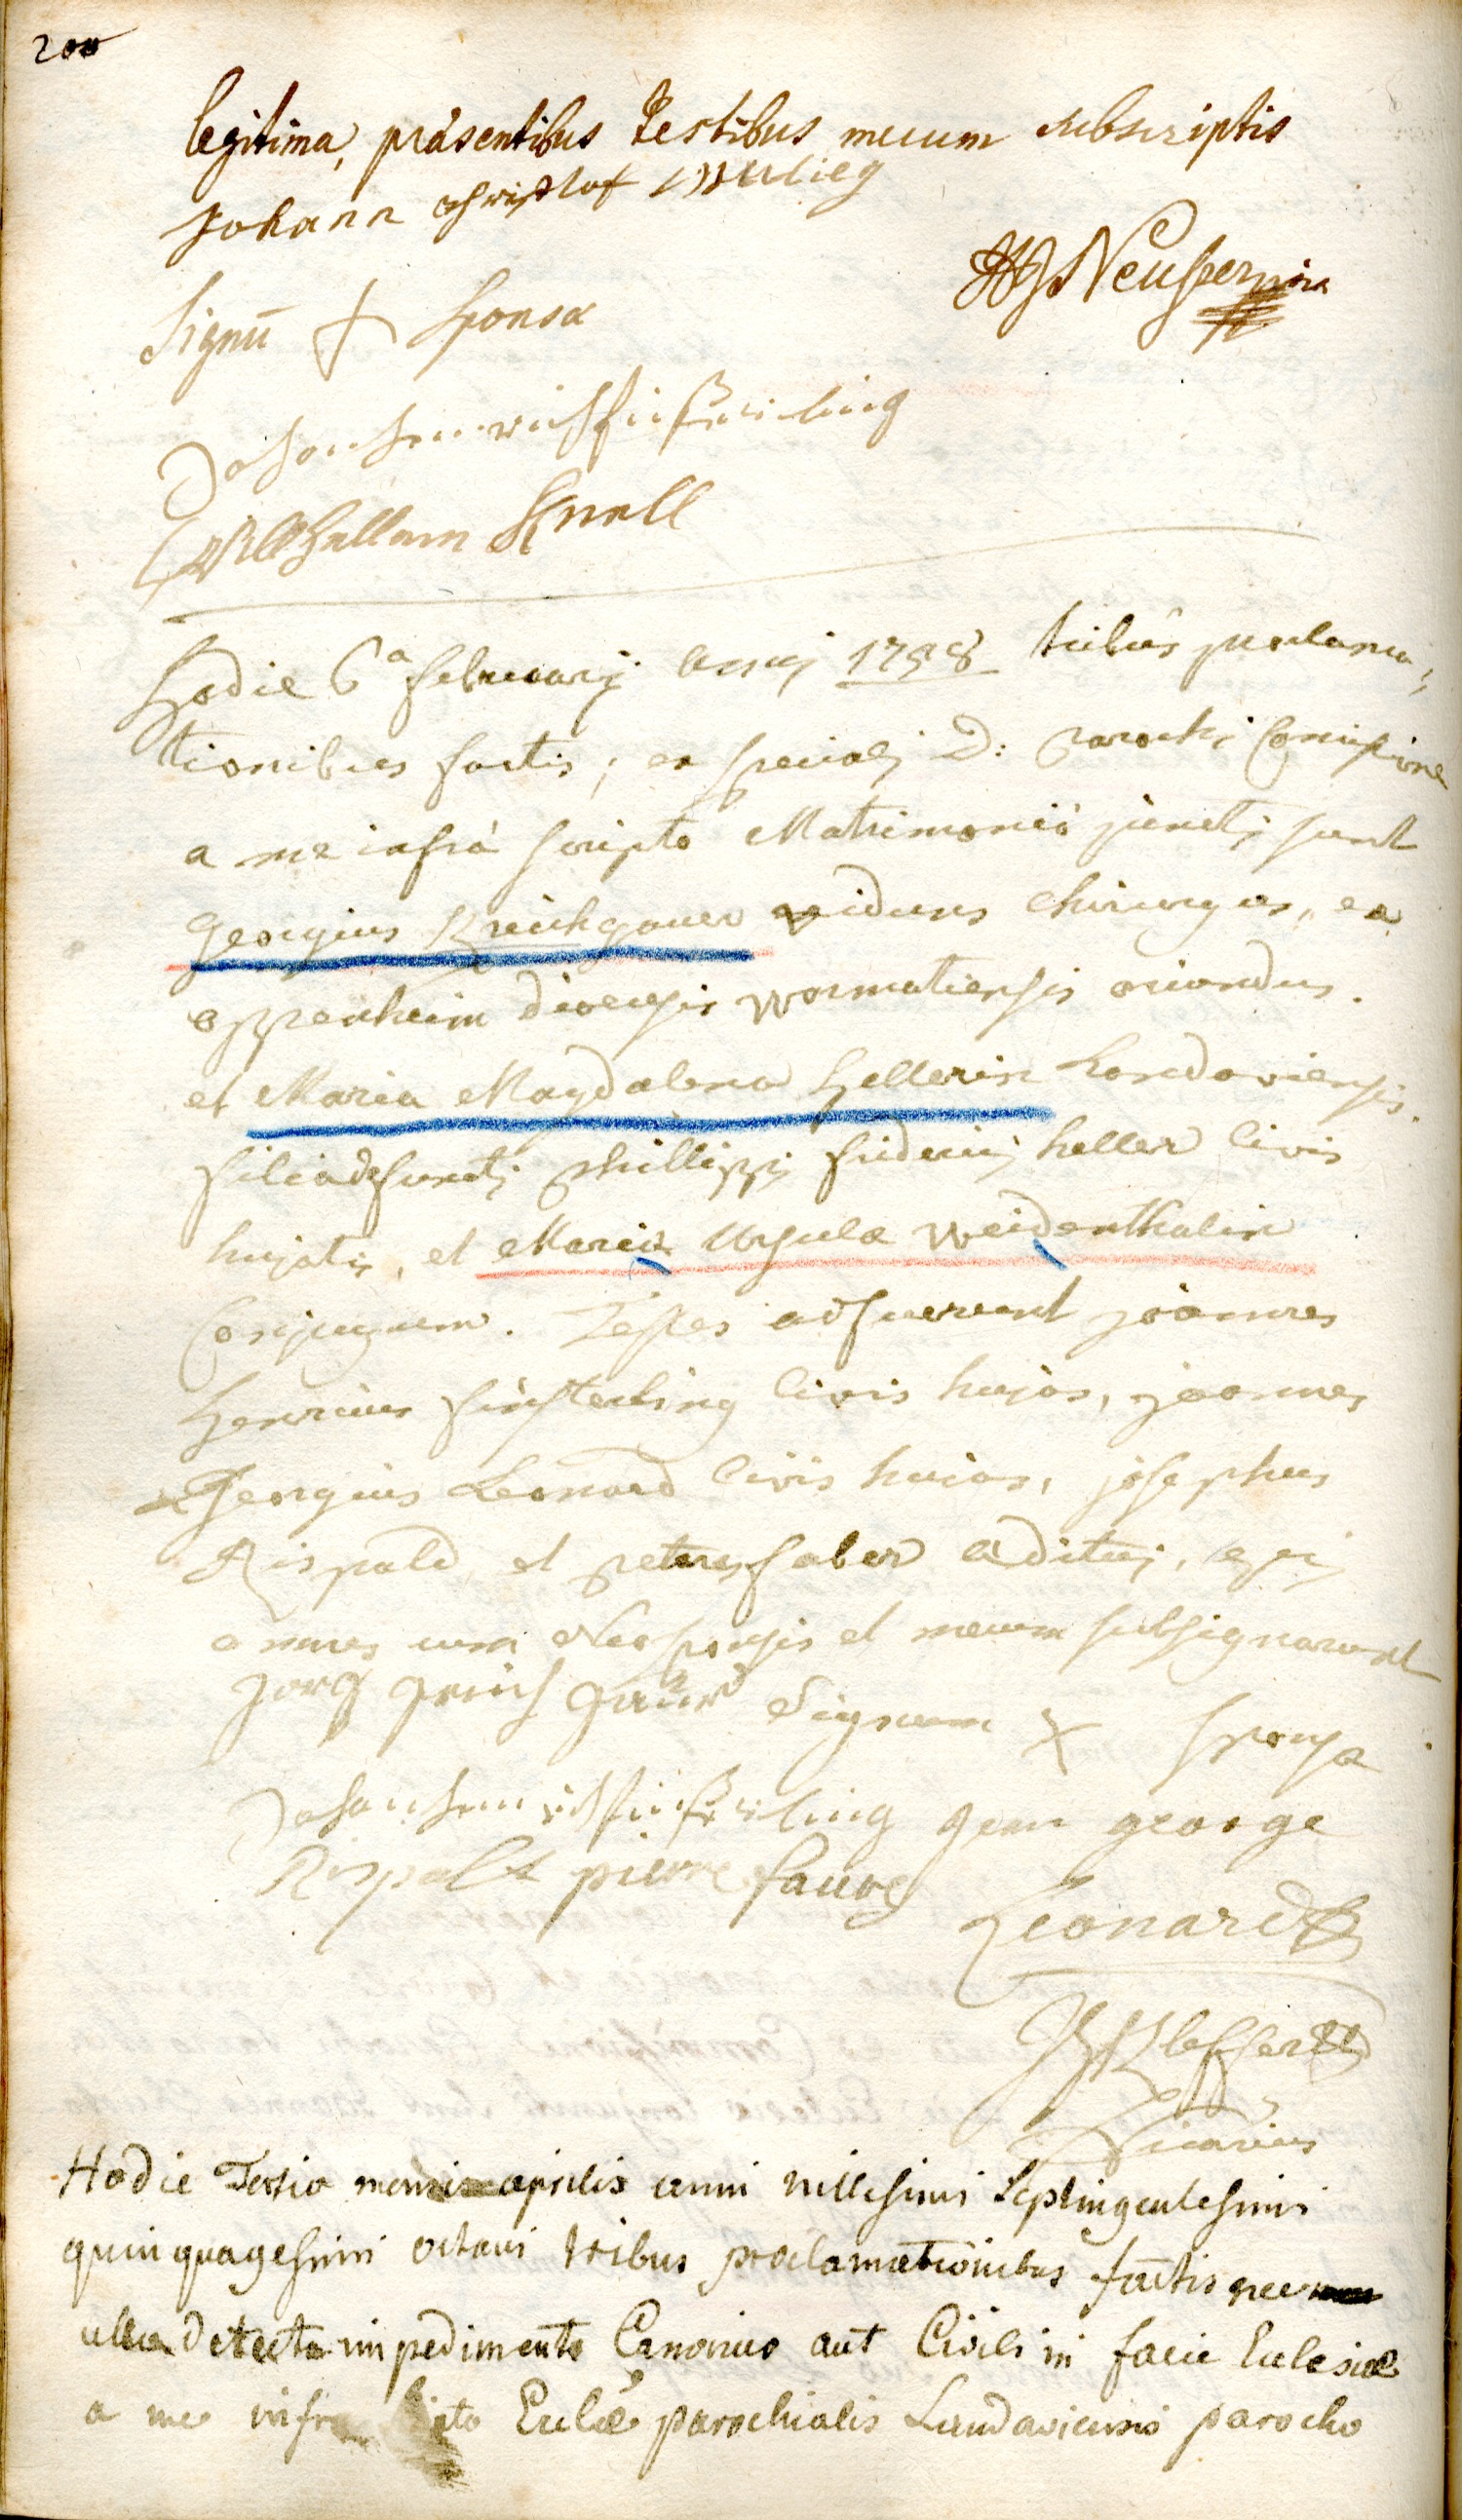 200
legitima, präsentibus testibus mecum subscriptis
Johann christof
Signū + sponsa
Johan henrich finsterling
Wilhellem Knoll
Hodie 6a februarij annj 1758 tribus proclama,
tionibus factis, ex specialj D: Parochi Comissione
a me infrá scripto Matrimonió junctj sunt
Georgius Kreichgauer viduus chirurgus, ex
oppenheim dioecesis wormatiensis oriundus.
et Maria Magdalena Hellerin Landaviensis.
filia defunctj phillippj friderici heller civis
hujatis, et Maria Ursula Weidenthalin
Conjugum. Testes adfuerunt joannes
Henricus finsterling civis hujas, joannes
Georgius Leonard civis huias, josephus
Rispald et petrus faber aeditui, qui
omnes cum Neosponsis et mecum subsignarunt
Jorg greich gauer Signum X sponsa
Johan henrich finsterling jean george
Rispalt pierre faure
Leonard
Vicarius
Hodie Tertio mensis aprilis anni millesimi septingentesimi
quinquagesimi octavi tribus proclamationibus factis nec
ullo detecto impedimento Canonico aut Civili in facie Eclesiae
a me infra Ecclae parochialis Landaviensis parocho